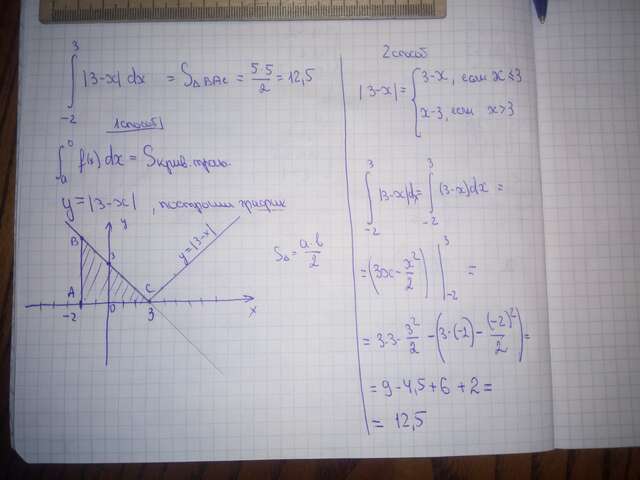 ∫₋₂³ |3-x| dx = S△ВАС = 5·5/2 = 12,5
1 способ
∫ₐᵇ f(x) dx = S крив. трап.
y = |3-x|, построим график
y
B
3
y=|3-x|
A
C
-2
0
3
x
S△ = a·b/2
2 способ
|3-x| = { 3-x, если x ≤ 3
x-3, если x > 3
∫₋₂³ |3-x| dx = ∫₋₂³ (3-x) dx =
= (3x - x²/2) |₋₂³ =
= 3·3 - 3²/2 - (3·(-2) - (-2)²/2) =
= 9 - 4,5 + 6 + 2 =
= 12,5